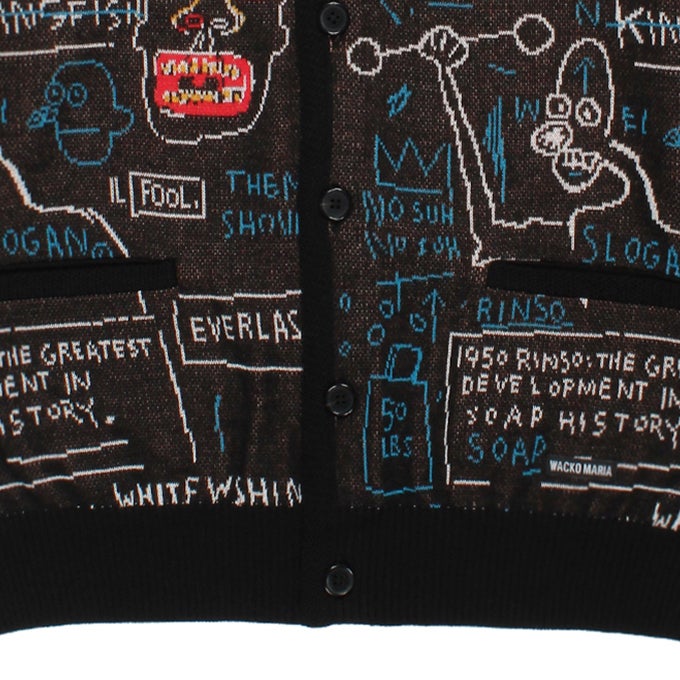 KIN
N
M
FOOL.
THEM
SHOW
NO SUH
NO SUH
LOGAN
SLOGA
RINSO
EVERLAS
THE GREATEST
MENT IN
ISTORY.
1950 RINSO: THE GR
DEVELOPMENT IN
SOAP HISTORY
SOAP
50
LBS
WACKO MARIA
WHITEWSHIN
WH